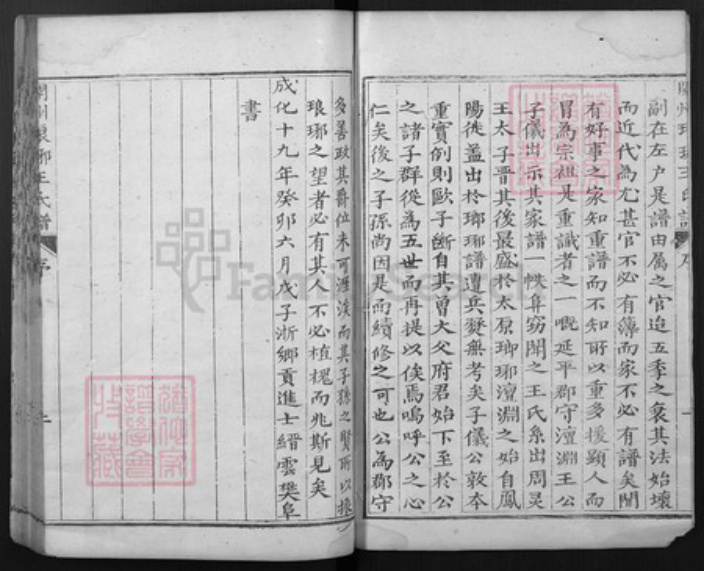 副在左户是譜由属之官迨五季之衰其法始壞
而近代為尤甚官不必有薄而家不必有譜矣間
有好事之家知重譜而不知所以重多援顕人而
冒為宗祖是重識者之一嘅延平郡守澶淵王公
子儀出示其家譜一帙阜窃閲之王氏系出周灵
王太子晋其後最盛於太原瑯琊澶淵之始自鳳
陽徙蓋出於瑯琊譜遭兵燹無考矣子儀公敦本
重實例則歐子断自其曾大父府君始下至於公
之諸子群從為五世而再提以俟焉嗚呼公之心
仁矣後之子孫尚因是而續修之可也公為郡守
多善政其爵位未可涯涘而其子孫之賢所以振
琅琊之望者必有其人不必植槐而兆斯見矣
成化十九年癸卯六月戊子浙鄉貢進士縉雲樊阜
書
開州琅琊王氏譜 序
FamilySearch